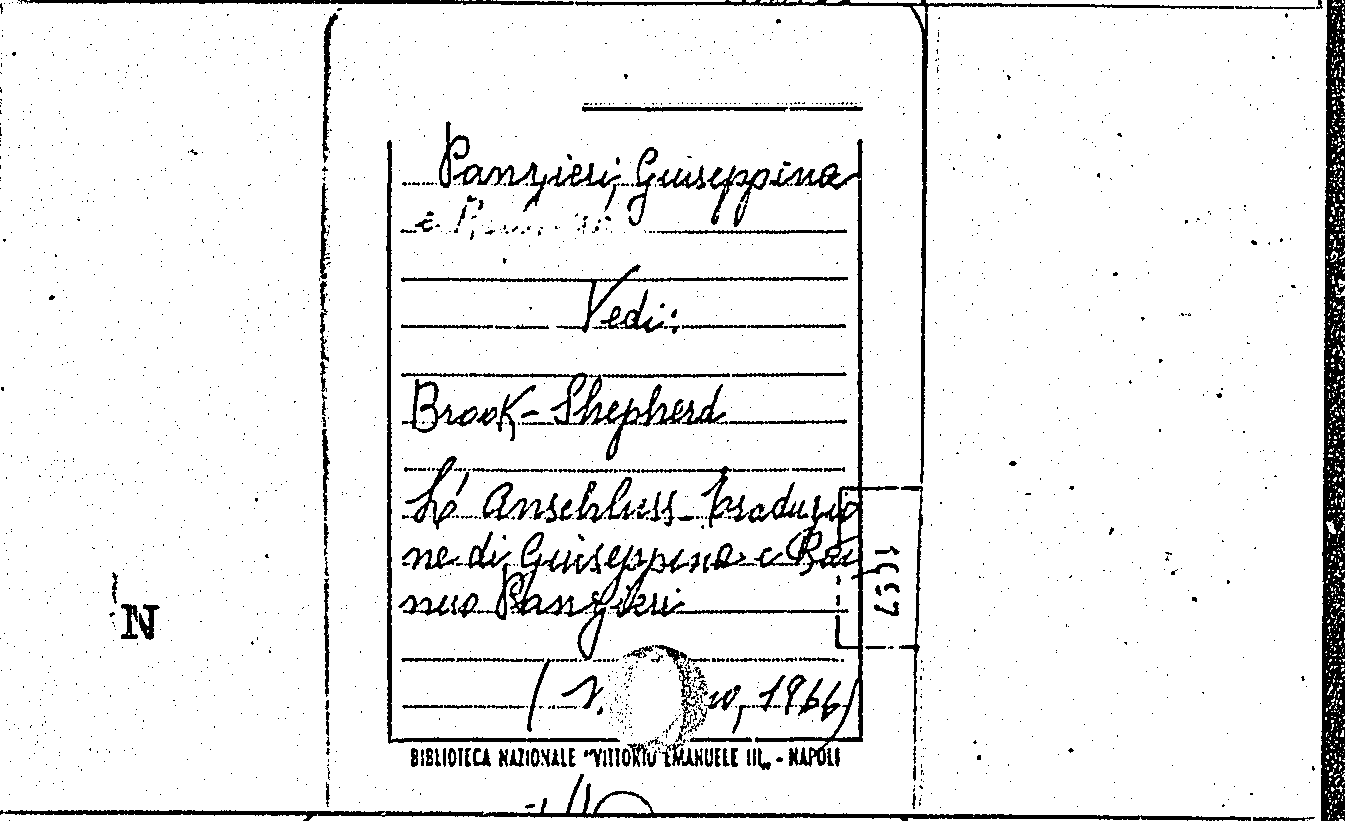 Panzieri, Giuseppina
e
Vedi:
Brook-Shepherd
L'Anschluss-Traduzio
ne di Giuseppina e Rai
niero Panzieri
, 1966)
BIBLIOTECA NAZIONALE "VITTORIO EMANUELE III„ - NAPOLI
N